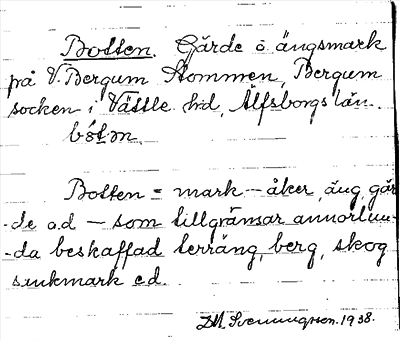 Botten. Gärde o ängsmark
på V. Bergum Stommen, Bergum
socken i Vättle hd, Älfsborgs län.
bótən.
Botten = mark – åker, äng, går
-de o.d – som tillgränsar annorlun-
-da beskaffad terräng, berg, skog
sankmark e.d.
D.M. Svenningsson. 1938.